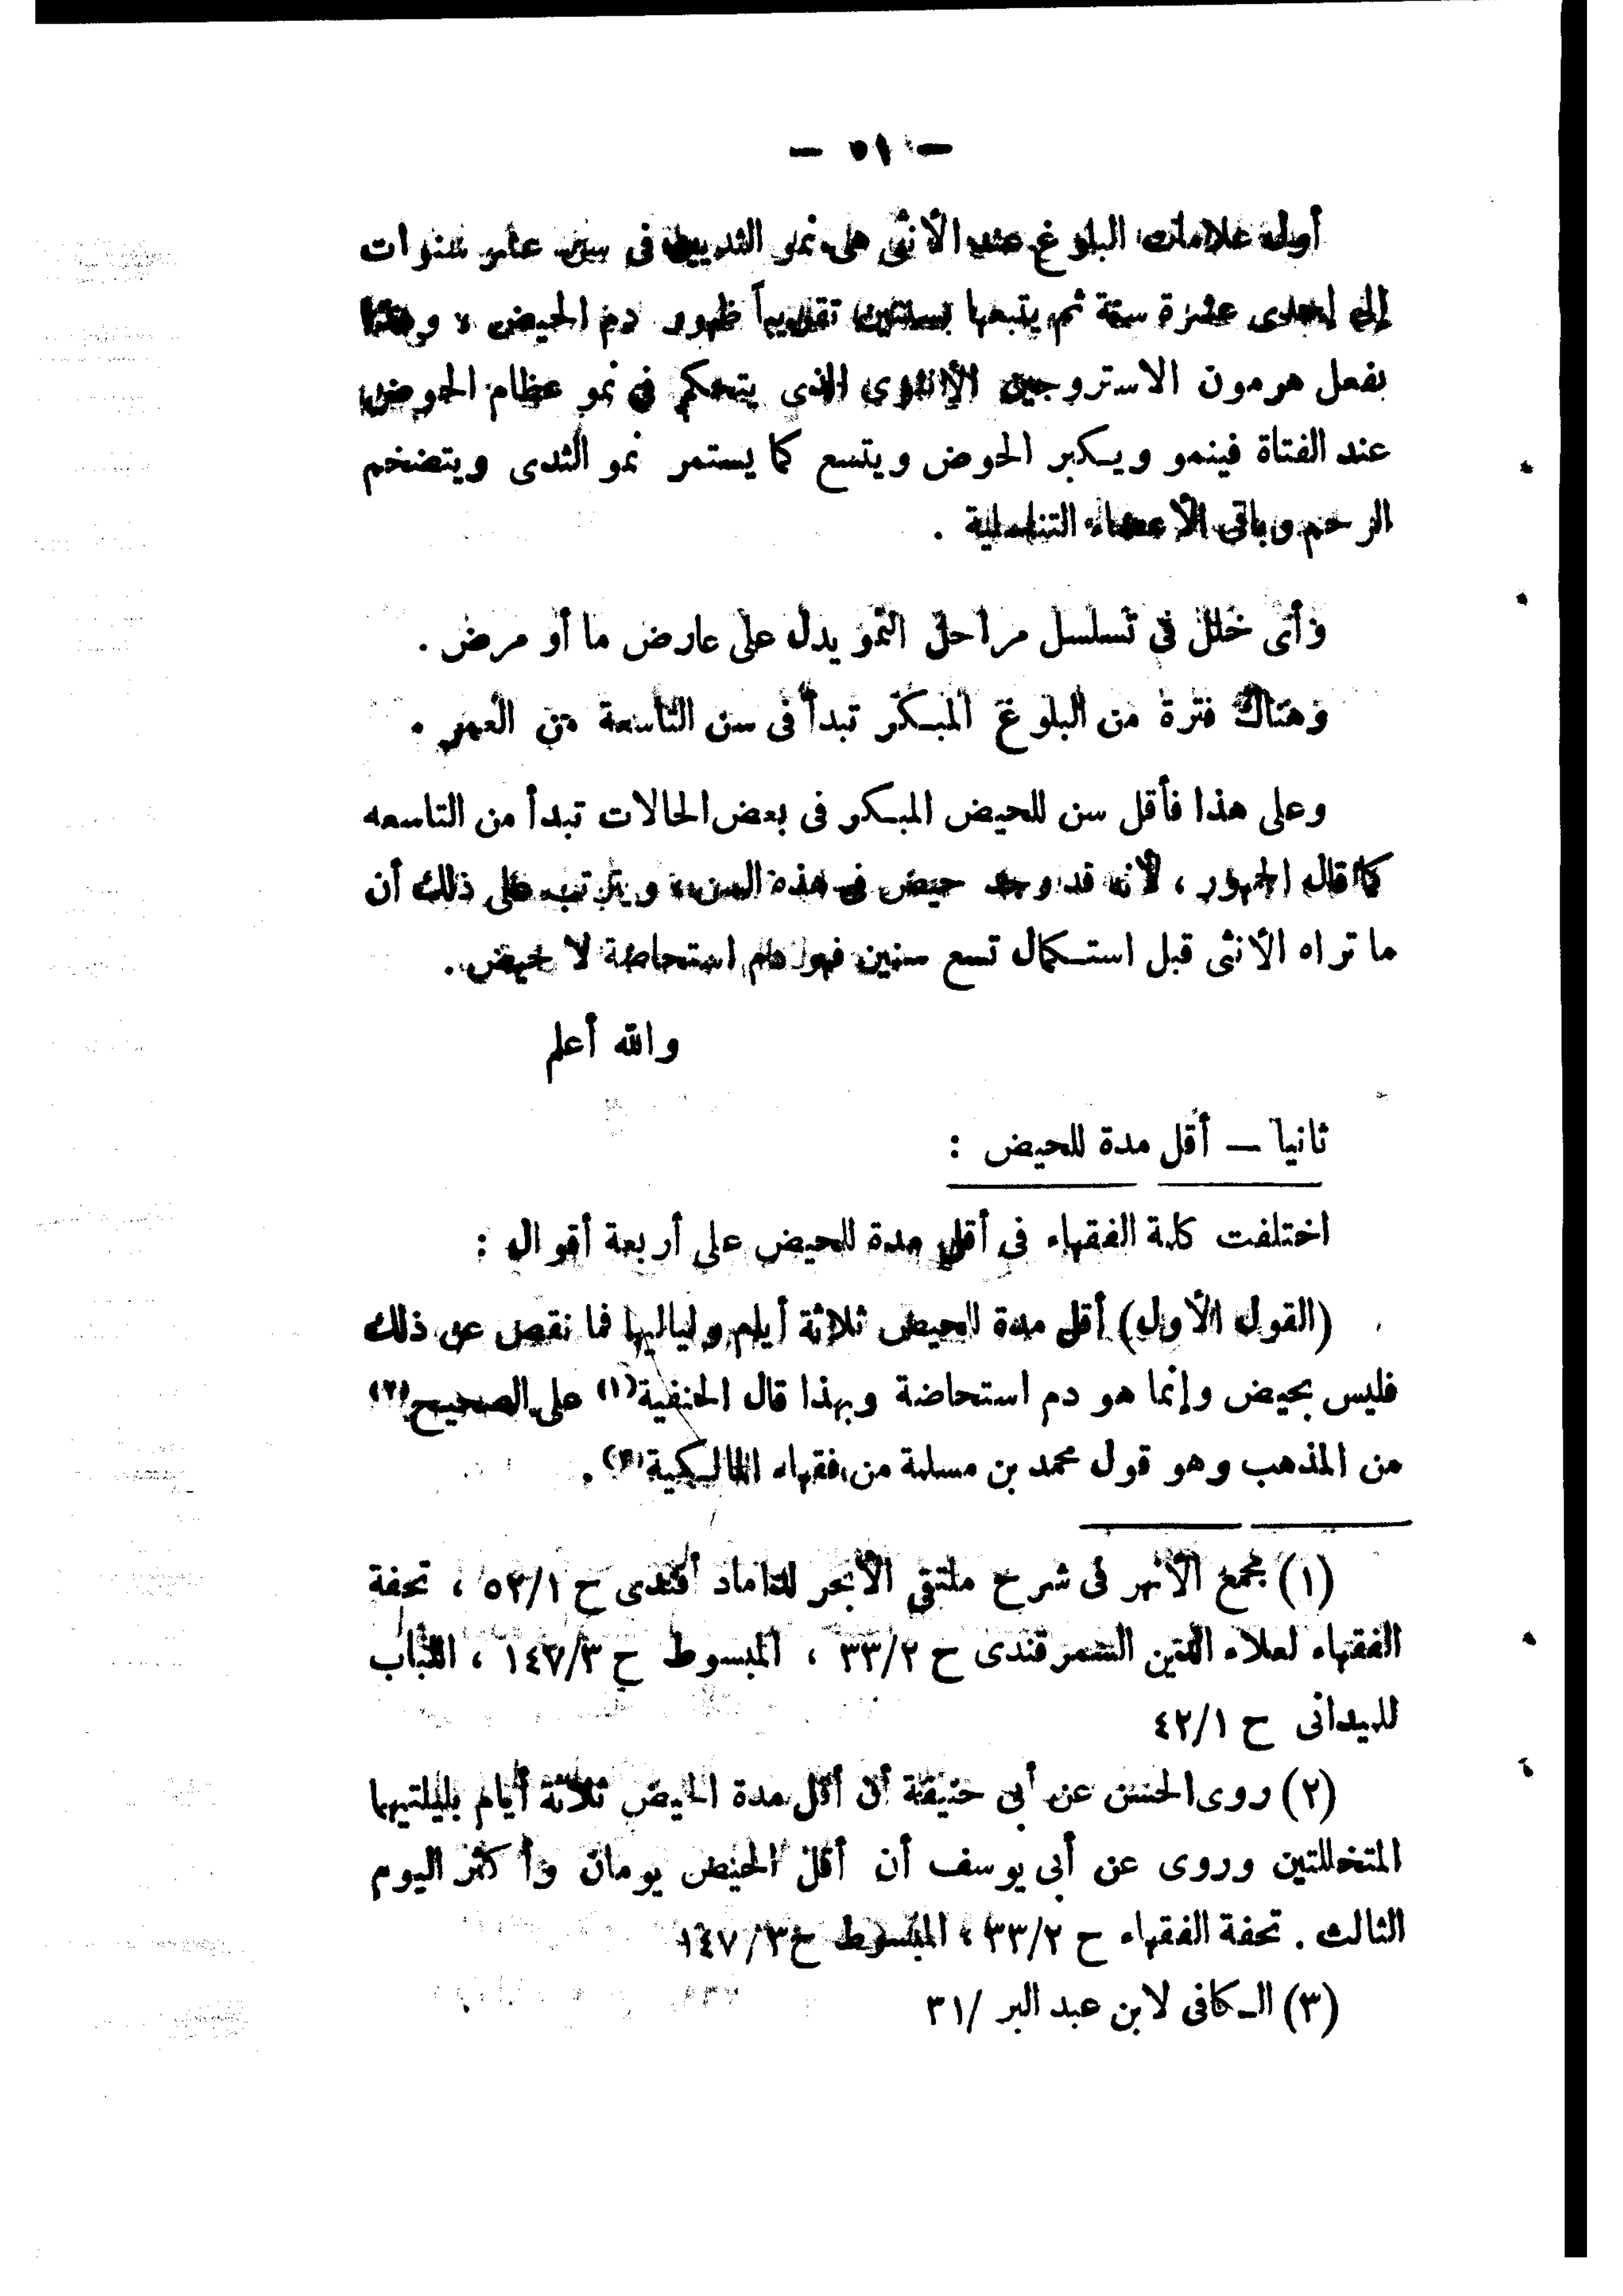 — ٥١ —
أول علامات البلوغ عند الأنثى هى نمو الثديين فى سن عشر سنوات
إلى إحدى عشرة سنة ثم يتبعها بسنتين تقريباً ظهور دم الحيض ، وهذا
بفعل هرمون الاستروجين الأنثوى الذى يتحكم فى نمو عظام الحوض
عند الفتاة فينمو ويكبر الحوض ويتسع كما يستمر نمو الثدى ويتضخم
الرحم وباقى الأعضاء التناسلية .
وأى خلل فى تسلسل مراحل النمو يدل على عارض ما أو مرض .
وهناك فترة من البلوغ المبكر تبدأ فى سن التاسعة من العمر .
وعلى هذا فأقل سن للحيض المبكر فى بعض الحالات تبدأ من التاسعه
كما قال الجمهور ، لأنه قد وجد حيض فى هذه السن ، ويترتب على ذلك أن
ما تراه الأنثى قبل استكمال تسع سنين فهو دم استحاضة لا حيض .
والله أعلم
ثانيا — أقل مدة للحيض :
اختلفت كلمة الفقهاء فى أقل مدة للحيض على أربعة أقوال :
(القول الأول) أقل مدة الحيض ثلاثة أيام ولياليها فما نقص عن ذلك
فليس بحيض وإنما هو دم استحاضة وبهذا قال الحنفية(١) على الصحيح(٢)
من المذهب وهو قول محمد بن مسلمة من فقهاء المالكية(٣) .
(١) مجمع الأنهر فى شرح ملتقى الأبحر للداماد أفندى ح ٥٢/١ ، تحفة
الفقهاء لعلاء الدين السمرقندى ح ٣٣/٢ ، المبسوط ح ١٤٧/٣ ، اللباب
للميدانى ح ٤٢/١
(٢) روى الحسن عن أبى حنيفة أن أقل مدة الحيض ثلاثة أيام بليلتيهما
المتخللتين وروى عن أبى يوسف أن أقل الحيض يومان وأكثر اليوم
الثالث . تحفة الفقهاء ح ٣٣/٢ ، المبسوط ح ١٤٧/٣
(٣) الكافى لابن عبد البر /٣١